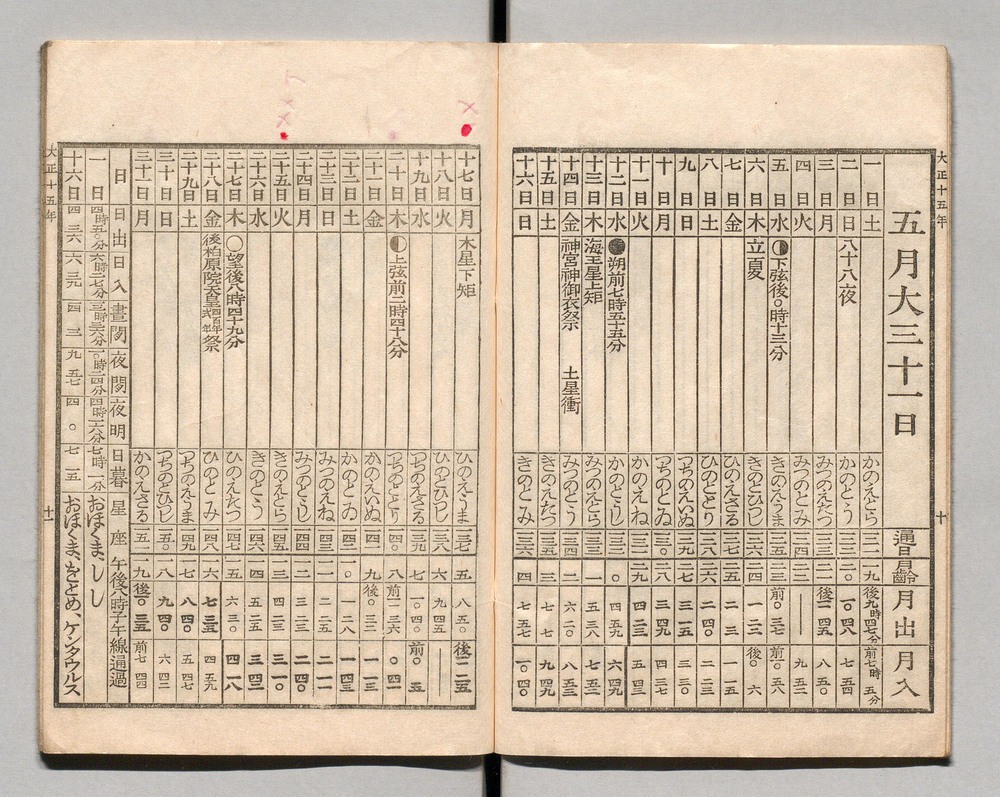 大正十五年
五月大三十一日 通日 月齢 月出 月入
一日 土 かのえとら 一二一 一九 後九時四七分 前七時五分
二日 日 八十八夜 かのとう 一二二 二〇 一〇 四八 七 五四
三日 月 みづのえたつ 一二三 二一 後一一 四五 八 五〇
四日 火 みづのとみ 一二四 二二 — 九 五二
五日 水 ◑下弦後〇時十三分 きのえうま 一二五 二三 前〇 三七 前一〇 五八
六日 木 立夏 きのとひつじ 一二六 二四 一 二三 後〇 六
七日 金 ひのえさる 一二七 二五 二 二 一 一五
八日 土 ひのととり 一二八 二六 二 四〇 二 二三
九日 日 つちのえいぬ 一二九 二七 三 一五 三 三〇
十日 月 つちのとゐ 一三〇 二八 三 四九 四 三七
十一日 火 かのえね 一三一 二九 四 二三 五 四三
十二日 水 ●朔前七時五十五分 かのとうし 一三二 〇 四 五九 六 四九
十三日 木 海王星上矩 みづのえとら 一三三 一 五 三八 七 五二
十四日 金 神宮神御衣祭 土星衝 みづのとう 一三四 二 六 二〇 八 五三
十五日 土 きのえたつ 一三五 三 七 七 九 四九
十六日 日 きのとみ 一三六 四 七 五七 一〇 四〇
十
十七日 月 木星下矩 ひのえうま 一三七 五 八 五〇 後一一 二五
十八日 火 ひのとひつじ 一三八 六 九 四五 —
十九日 水 つちのえさる 一三九 七 一〇 四〇 前〇 五
二十日 木 ◐上弦前二時四十八分 つちのととり 一四〇 八 前一一 三六 〇 四一
二十一日 金 かのえいぬ 一四一 九 後〇 三二 一 一三
二十二日 土 かのとゐ 一四二 一〇 一 二八 一 四三
二十三日 日 みづのえね 一四三 一一 二 二五 二 一一
二十四日 月 みづのとうし 一四四 一二 三 二三 二 四〇
二十五日 火 きのえとら 一四五 一三 四 二三 三 一〇
二十六日 水 きのとう 一四六 一四 五 二五 三 四二
二十七日 木 ○望後八時四十九分 ひのえたつ 一四七 一五 六 三〇 四 一八
二十八日 金 後柏原院天皇四百年式年祭 ひのとみ 一四八 一六 七 三五 四 五九
二十九日 土 つちのえうま 一四九 一七 八 四〇 五 四七
三十日 日 つちのとひつじ 一五〇 一八 九 四〇 六 四二
三十一日 月 かのえさる 一五一 一九 後一〇 三五 前七 四四
日 日出 日入 昼間 夜間 夜明 日暮 星座 午後八時子午線通過
一日 四時五〇分 六時二七分 一三時三六分 一〇時二四分 四時一六分 七時一分 おほくま、しし
十六日 四 三六 六 三九 一四 三 九 五七 四 〇 七 一五 おほくま、をとめ、ケンタウルス
大正十五年
十一